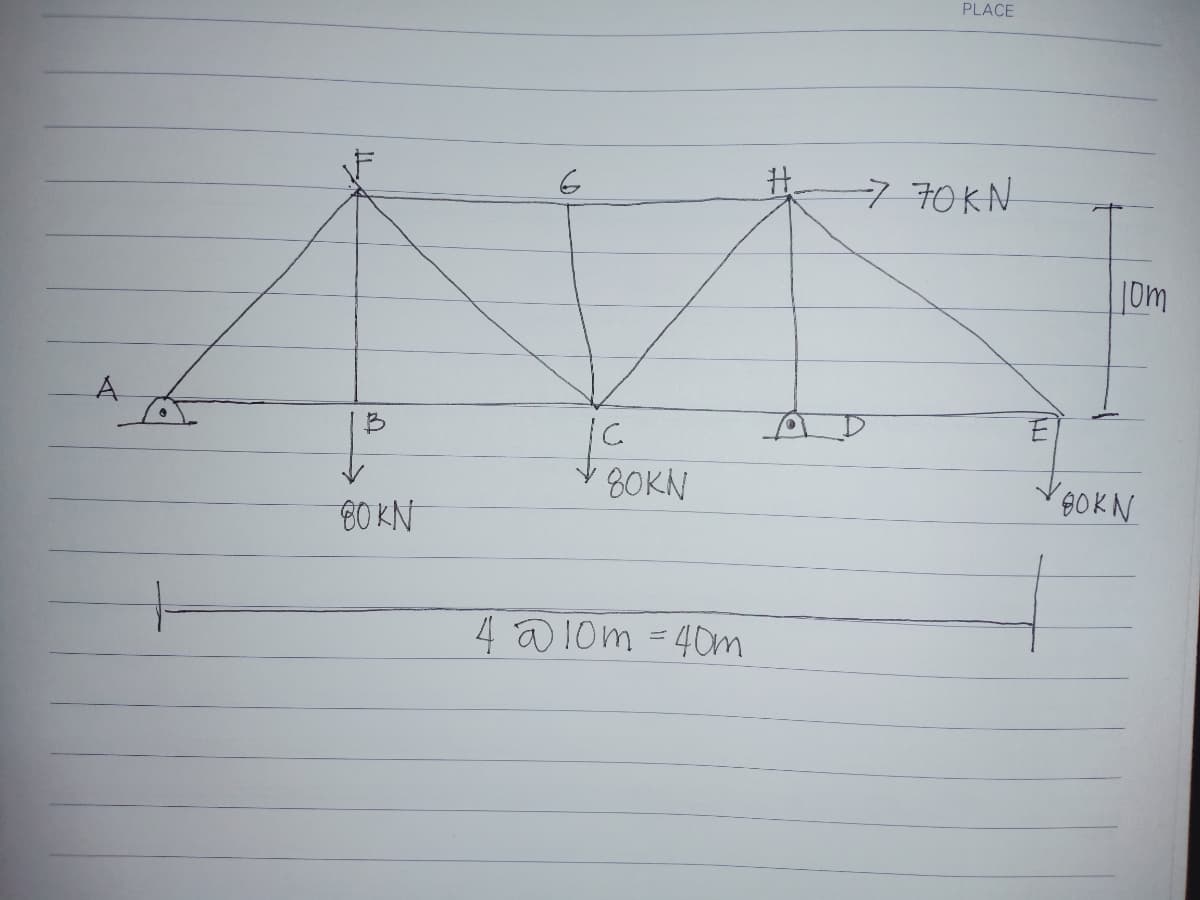 PLACE
F
G
H
70KN
10m
A
B
C
D
E
80KN
80KN
80KN
4 @ 10m = 40m